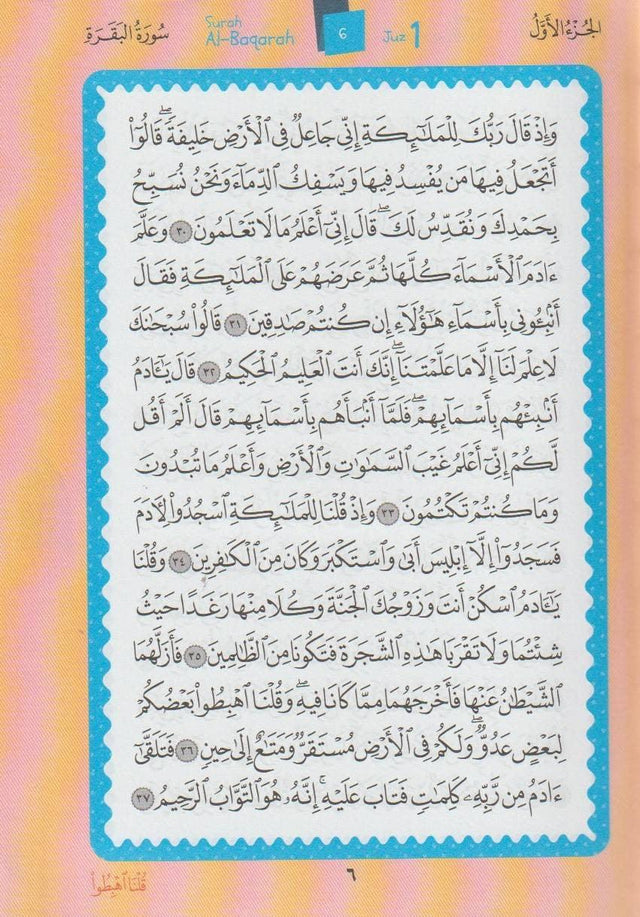 سُورَةُ البَقَرَةِ
Surah
Al-Baqarah
6
Juz 1
الجُزْءُ الأَوَّلُ
وَإِذْ قَالَ رَبُّكَ لِلْمَلَٰٓئِكَةِ إِنِّي جَاعِلٌ فِي ٱلْأَرْضِ خَلِيفَةً ۖ قَالُوٓا۟
أَتَجْعَلُ فِيهَا مَن يُفْسِدُ فِيهَا وَيَسْفِكُ ٱلدِّمَآءَ وَنَحْنُ نُسَبِّحُ
بِحَمْدِكَ وَنُقَدِّسُ لَكَ ۖ قَالَ إِنِّيٓ أَعْلَمُ مَا لَا تَعْلَمُونَ ٣٠ وَعَلَّمَ
ءَادَمَ ٱلْأَسْمَآءَ كُلَّهَا ثُمَّ عَرَضَهُمْ عَلَى ٱلْمَلَٰٓئِكَةِ فَقَالَ
أَنۢبِـُٔونِي بِأَسْمَآءِ هَٰٓؤُلَآءِ إِن كُنتُمْ صَٰدِقِينَ ٣١ قَالُوا۟ سُبْحَٰنَكَ
لَا عِلْمَ لَنَآ إِلَّا مَا عَلَّمْتَنَآ ۖ إِنَّكَ أَنتَ ٱلْعَلِيمُ ٱلْحَكِيمُ ٣٢ قَالَ يَٰٓـَٔادَمُ
أَنۢبِئْهُم بِأَسْمَآئِهِمْ ۖ فَلَمَّآ أَنۢبَأَهُم بِأَسْمَآئِهِمْ قَالَ أَلَمْ أَقُل
لَّكُمْ إِنِّيٓ أَعْلَمُ غَيْبَ ٱلسَّمَٰوَٰتِ وَٱلْأَرْضِ وَأَعْلَمُ مَا تُبْدُونَ
وَمَا كُنتُمْ تَكْتُمُونَ ٣٣ وَإِذْ قُلْنَا لِلْمَلَٰٓئِكَةِ ٱسْجُدُوا۟ لِءَادَمَ
فَسَجَدُوٓا۟ إِلَّآ إِبْلِيسَ أَبَىٰ وَٱسْتَكْبَرَ وَكَانَ مِنَ ٱلْكَٰفِرِينَ ٣٤ وَقُلْنَا
يَٰٓـَٔادَمُ ٱسْكُنْ أَنتَ وَزَوْجُكَ ٱلْجَنَّةَ وَكُلَا مِنْهَا رَغَدًا حَيْثُ
شِئْتُمَا وَلَا تَقْرَبَا هَٰذِهِ ٱلشَّجَرَةَ فَتَكُونَا مِنَ ٱلظَّٰلِمِينَ ٣٥ فَأَزَلَّهُمَا
ٱلشَّيْطَٰنُ عَنْهَا فَأَخْرَجَهُمَا مِمَّا كَانَا فِيهِ ۖ وَقُلْنَا ٱهْبِطُوا۟ بَعْضُكُمْ
لِبَعْضٍ عَدُوٌّ ۖ وَلَكُمْ فِي ٱلْأَرْضِ مُسْتَقَرٌّ وَمَتَٰعٌ إِلَىٰ حِينٍ ٣٦ فَتَلَقَّىٰٓ
ءَادَمُ مِن رَّبِّهِۦ كَلِمَٰتٍ فَتَابَ عَلَيْهِ ۚ إِنَّهُۥ هُوَ ٱلتَّوَّابُ ٱلرَّحِيمُ ٣٧
٦
قُلْنَا ٱهْبِطُوا۟